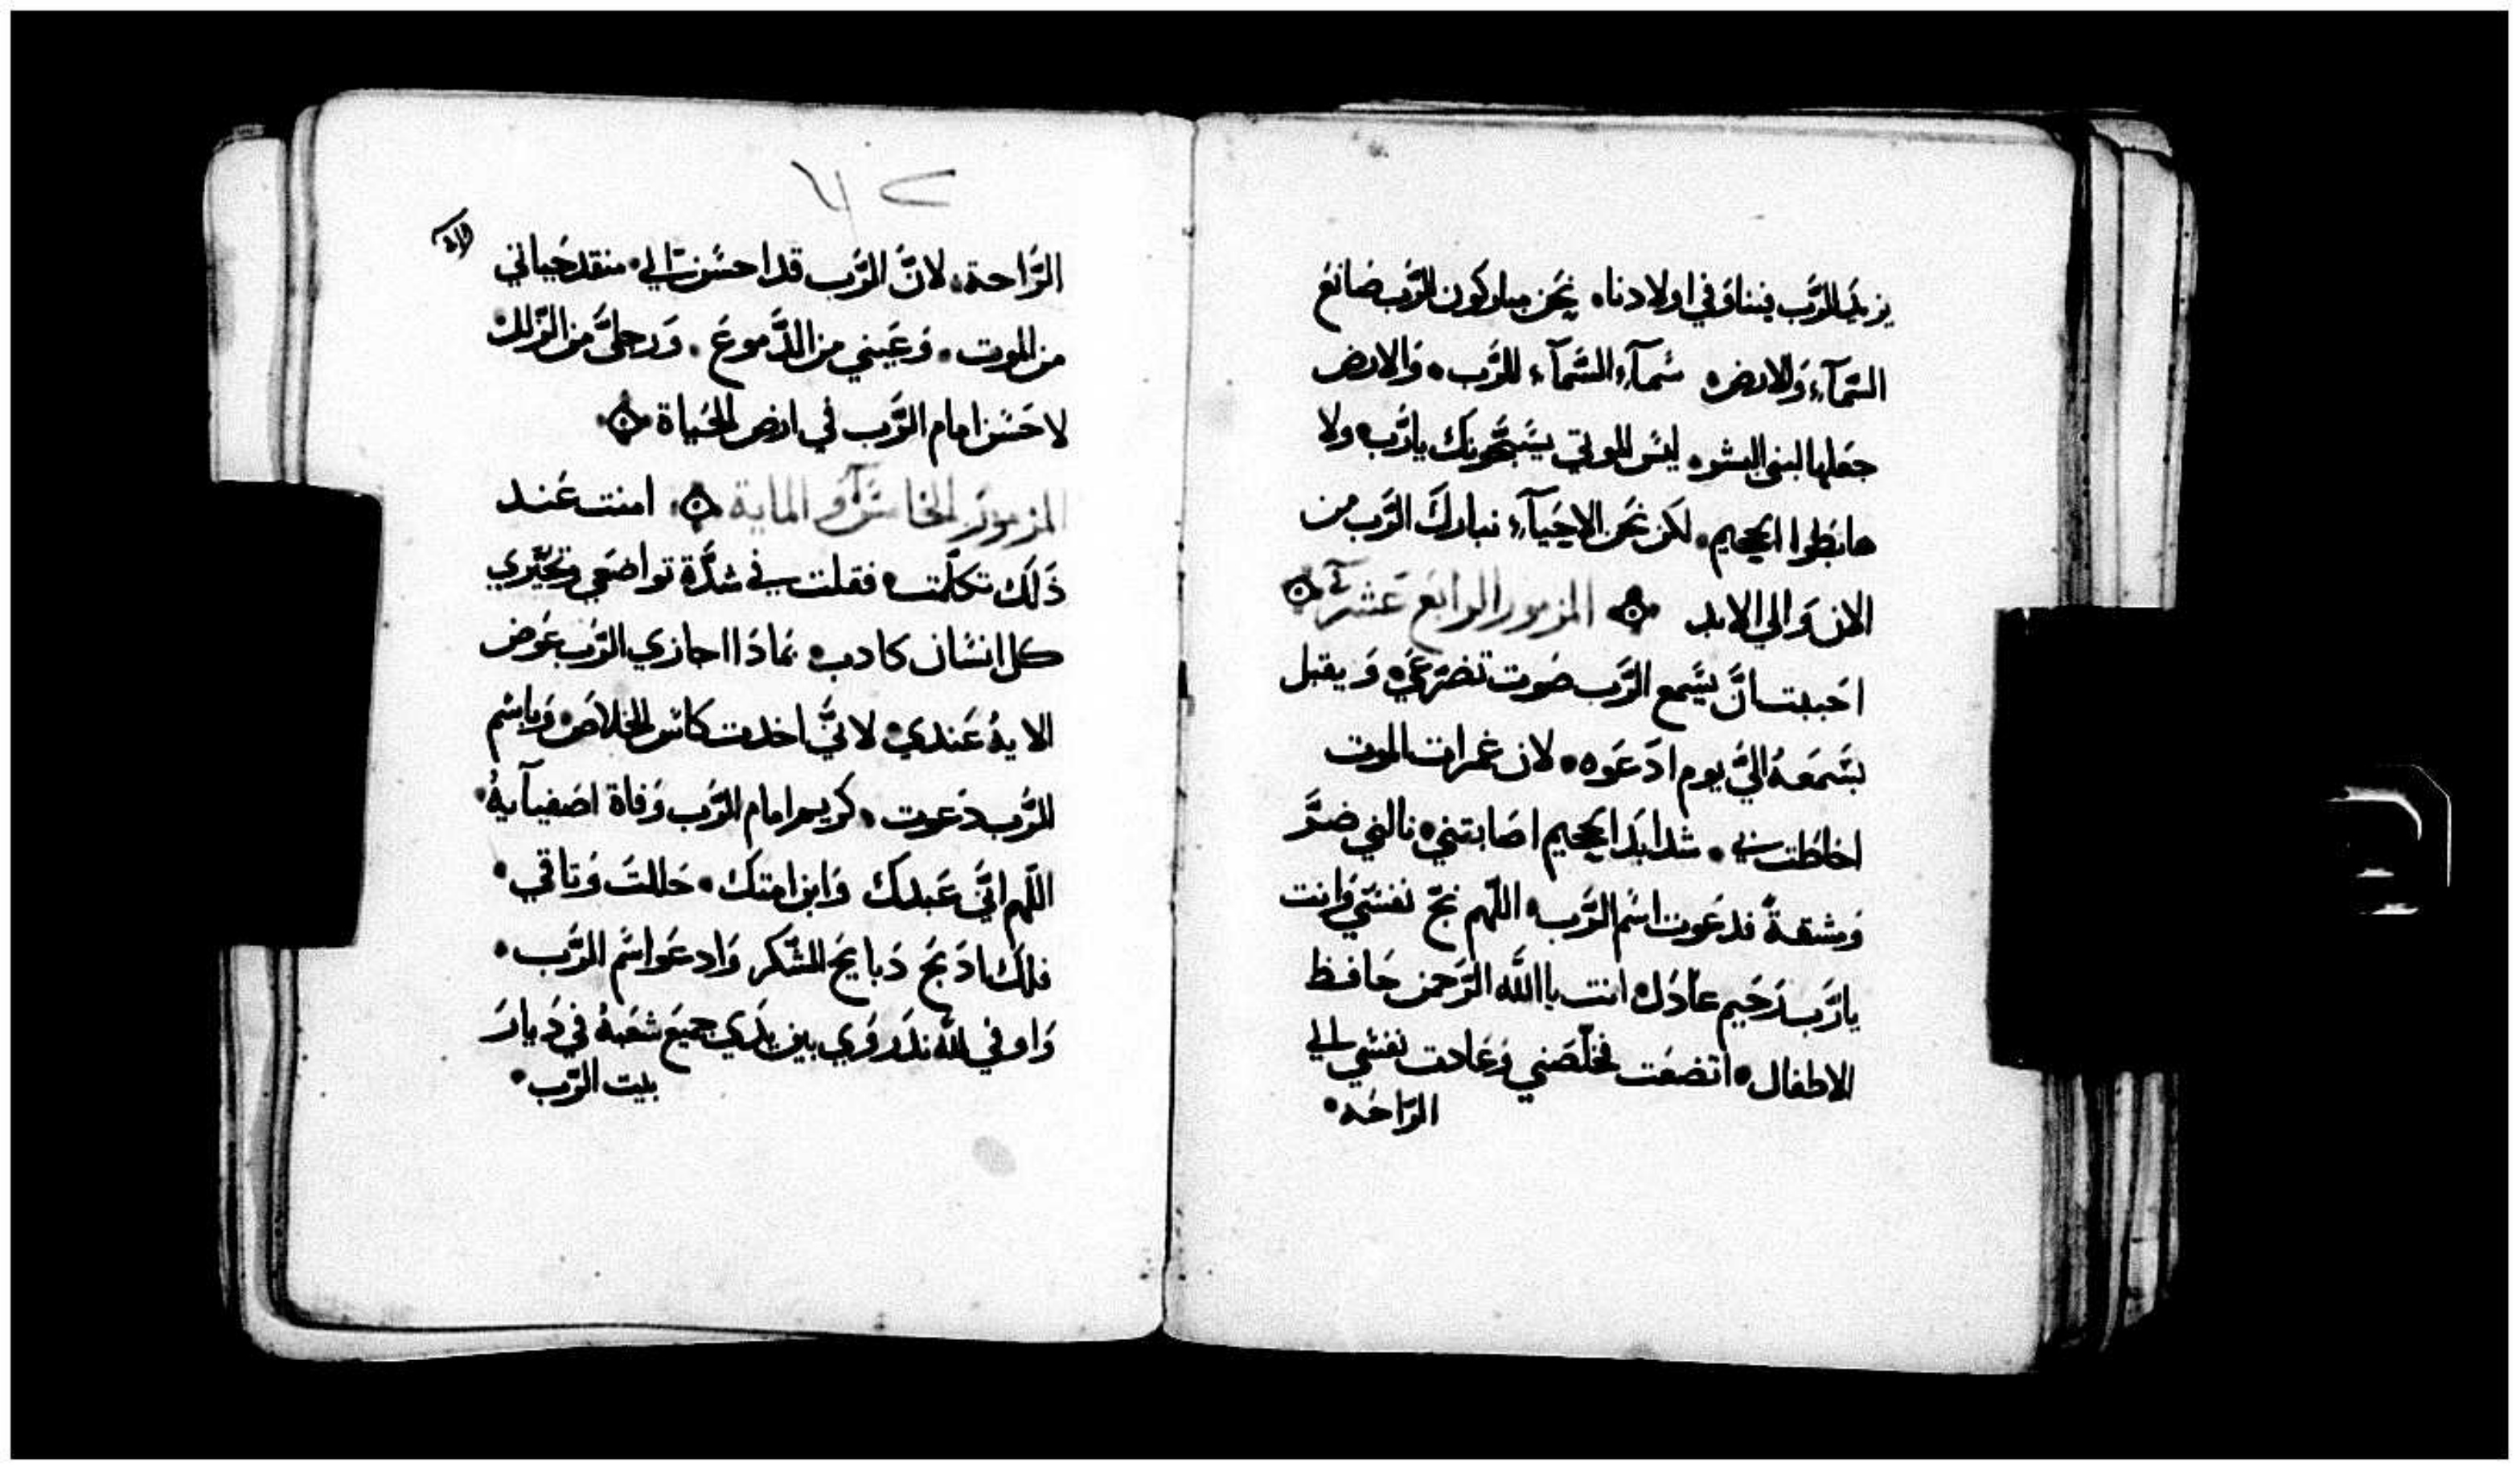 يزيد الرَّب فيناوَ في اولادنا، نحَن مباركون للرَّب صَانعَ
السَّمآءِ وَالارض، سَمآءِ السَّمآء للرَّب، وَالارض
جعَلها لبني البشر، ليسَ الموتي يسَبّحُونك يارَّب، ولا
هابطوا الجحيم، لكن نحَن الاحَيآء نباركَ الرَّب من
الان وَالي الابد المزمور الرابع عَشر
احَببت انَّ يسَمع الرَّب صَوت تضرّعَي، وَيقبل
بسَمعَهُ اليَّ يوم ادَعَوه، لان غمرات الموت
احَاطَت بي، شدايَد الجحيم اصَابتني، نالني ضرَّ
وَمشقةَ فدعَوت اسَم الرَّب، اللّهم نجّ نفسَي وَانت
يارَّب رَحَيم عادَل، انت ياالله الرَّحمن حَافظ
الاطفال، اتضعَت فخلّصَني وَعَادت نفسَي الي
الرّاحَه
٦٢
الرَّاحة، لانَّ الرَّب قد احسَن اليَّ، منقد حَياتي
من الموت، وَعَيني من الدَّموعَ، وَرجليَّ من الزّلل
لاحَسَن امام الرَّب في ارض الحَياة
المزمورَ الخامسَ وَ الماية امنت عَند
ذَلكَ تكلّمت، فقلت في شدَّة تواضَعي وتحَيّري
كل انسَان كادب، بمادَا اجازي الرَّب عَوض
الايهُ عَندي، لانيَّ اخدت كاسَ الخلاصَ، وَباسَم
الرَّب دَعوت، كريم امام الرَّب وَفاة اصَفيآيهُ
اللّهم انيَّ عَبدكَ وَابن امتك، حَللتَ وَتاقي
فلكَ ادَبحَ دَبايحَ الشّكر وَادعَوا اسَم الرَّب
وَاوفي للّه ندَورَي بين يدَي جميعَ شعَبهُ في دَيارَ
بيت الرّب